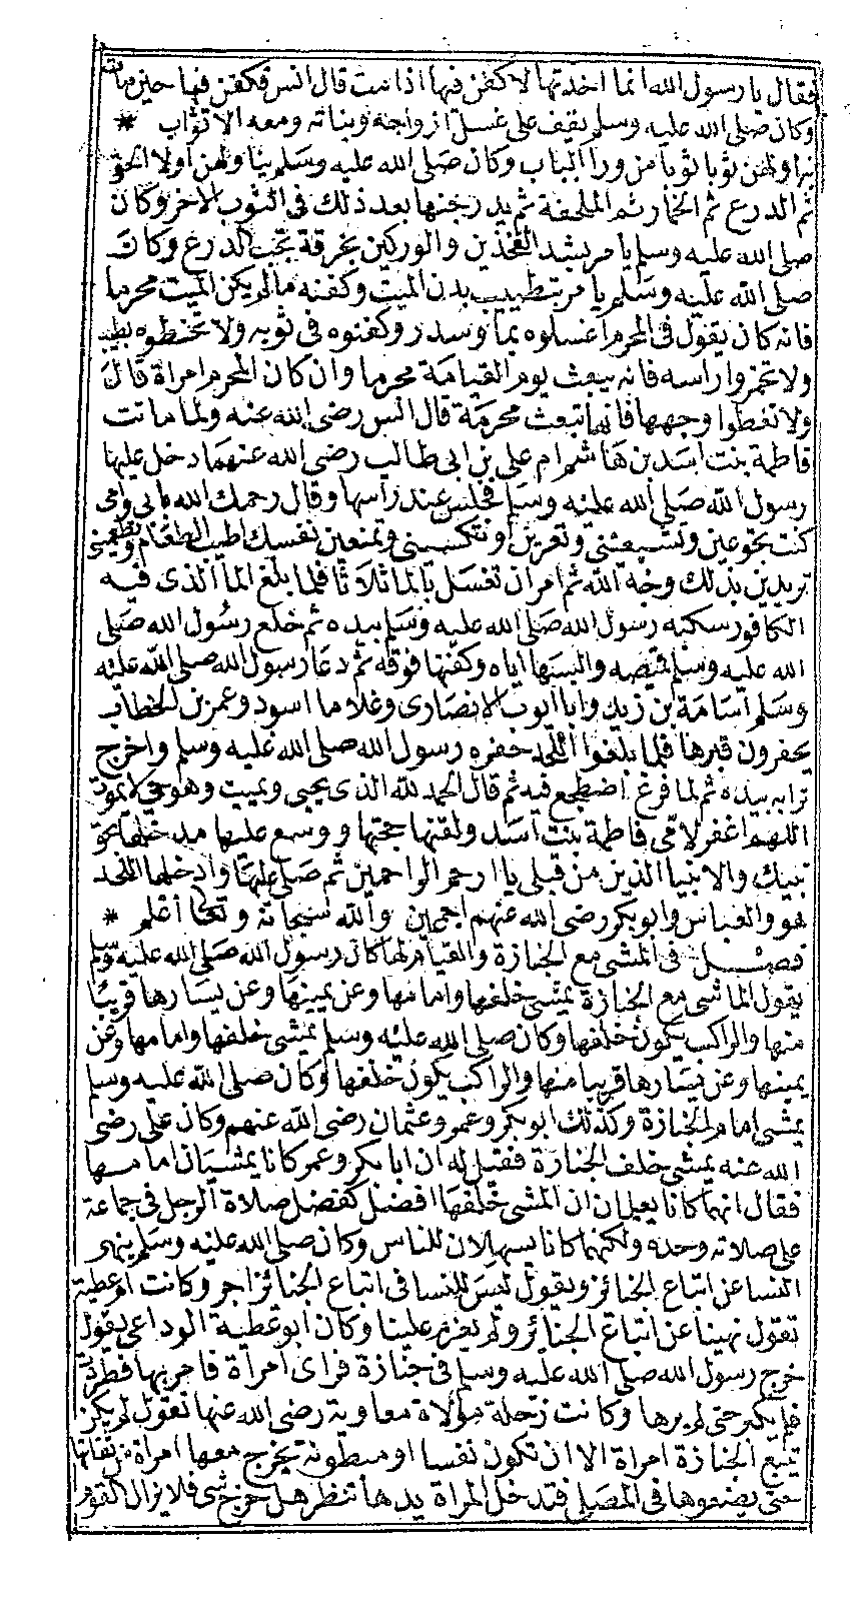 فقال يا رسول الله انما اخذتها لاكفن فيها اذا مت قال انس فكفن فيها حين مات
وكان صلى الله عليه وسلم يقف على غسل ازواجه وبناته ومعه الاثواب *
يناولهن ثوبا ثوبا من ورا الباب وكان صلى الله عليه وسلم يناولهن اولا الحقو
ثم الدرع ثم الخمار ثم الملحفة ثم يدرجنها بعد ذلك في الثوب الاخر وكان
صلى الله عليه وسلم يامر بشد الفخذين والوركين بخرقة تحت الدرع وكان
صلى الله عليه وسلم يامر بتطييب بدن الميت وكفنه ما لم يكن الميت محرما
فانه كان يقول في المحرم اغسلوه بما وسدر وكفنوه في ثوبه ولا تحنطوه بطيب
ولا تخمروا راسه فانه يبعث يوم القيامة محرما وان كان المحرم امراة قال
ولا تغطوا وجهها فانها تبعث محرمة قال انس رضى الله عنه ولما ماتت
فاطمة بنت اسد بن هاشم ام علي بن ابى طالب رضى الله عنهما دخل عليها
رسول الله صلى الله عليه وسلم فجلس عند راسها وقال رحمك الله يا امى
كنت تجوعين وتشبعيني وتعرين وتكسيني وتمنعين نفسك اطيب الطعام وتطعميني
تريدين بذلك وجه الله ثم امر ان تغسل بالما ثلاثا فلما بلغ الما الذى فيه
الكافور سكبه رسول الله صلى الله عليه وسلم بيده ثم خلع رسول الله صلى
الله عليه وسلم قميصه والبسها اياه وكفنها فوقه ثم دعا رسول الله صلى الله عليه
وسلم اسامة بن زيد وابا ايوب الانصارى وغلاما اسود وعمر بن الخطاب
يحفرون قبرها فلما بلغوا اللحد حفره رسول الله صلى الله عليه وسلم واخرج
ترابه بيده ثم لما فرغ اضطجع فيه ثم قال الحمد لله الذى يحيى ويميت وهو حي لا يموت
اللهم اغفر لامى فاطمة بنت اسد ولقنها حجتها ووسع عليها مدخلها بحق
نبيك والانبيا الذين من قبلي يا ارحم الراحمين ثم صلى عليها وادخلها اللحد
هو والعباس وابو بكر رضى الله عنهم اجمعين والله سبحانه وتعالى اعلم *
فصل في المشى مع الجنازة والقيام لها كان رسول الله صلى الله عليه وسلم
يقول الماشى مع الجنازة يمشى خلفها وامامها وعن يمينها وعن يسارها قريبا
منها والراكب يكون خلفها وكان صلى الله عليه وسلم يمشى خلفها وامامها وعن
يمينها وعن يسارها قريبا منها والراكب يكون خلفها وكان صلى الله عليه وسلم
يمشى امام الجنازة وكذلك ابو بكر وعمر وعثمان رضى الله عنهم وكان على رضى
الله عنه يمشى خلف الجنازة فقيل له ان ابا بكر وعمر كانا يمشيان امامها
فقال انهما كانا يعلمان ان المشى خلفها افضل كفضل صلاة الرجل في جماعة
على صلاته وحده ولكنهما كانا يسهلان للناس وكان صلى الله عليه وسلم ينهى
النسا عن اتباع الجنائز ويقول ليس للنسا في اتباع الجنائز اجر وكانت ام عطية
تقول نهينا عن اتباع الجنائز ولم يعزم علينا وكان ابو عطية الوداعى يقول
خرج رسول الله صلى الله عليه وسلم في جنازة فراى امراة فامر بها فطردت
فلم يكبر حتى لم يرها وكانت زحلة مولاة معاوية رضى الله عنها تقول لم يكن
تتبع الجنازة امراة الا ان تكون نفسا او مبطونة يخرج معها امراة من ثقاتها
حتى يضعوها في المصلى فتدخل المراة يدها تنظر هل خرج شى فلا يزال القوم